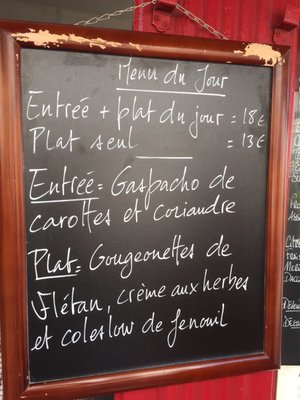 Menu du Jour
Entrée + plat du jour = 18€
Plat seul = 13€
Entrée = Gaspacho de
carottes et coriandre
Plat = Gougeonettes de
Flétan, crème aux herbes
et coleslow de fenouil